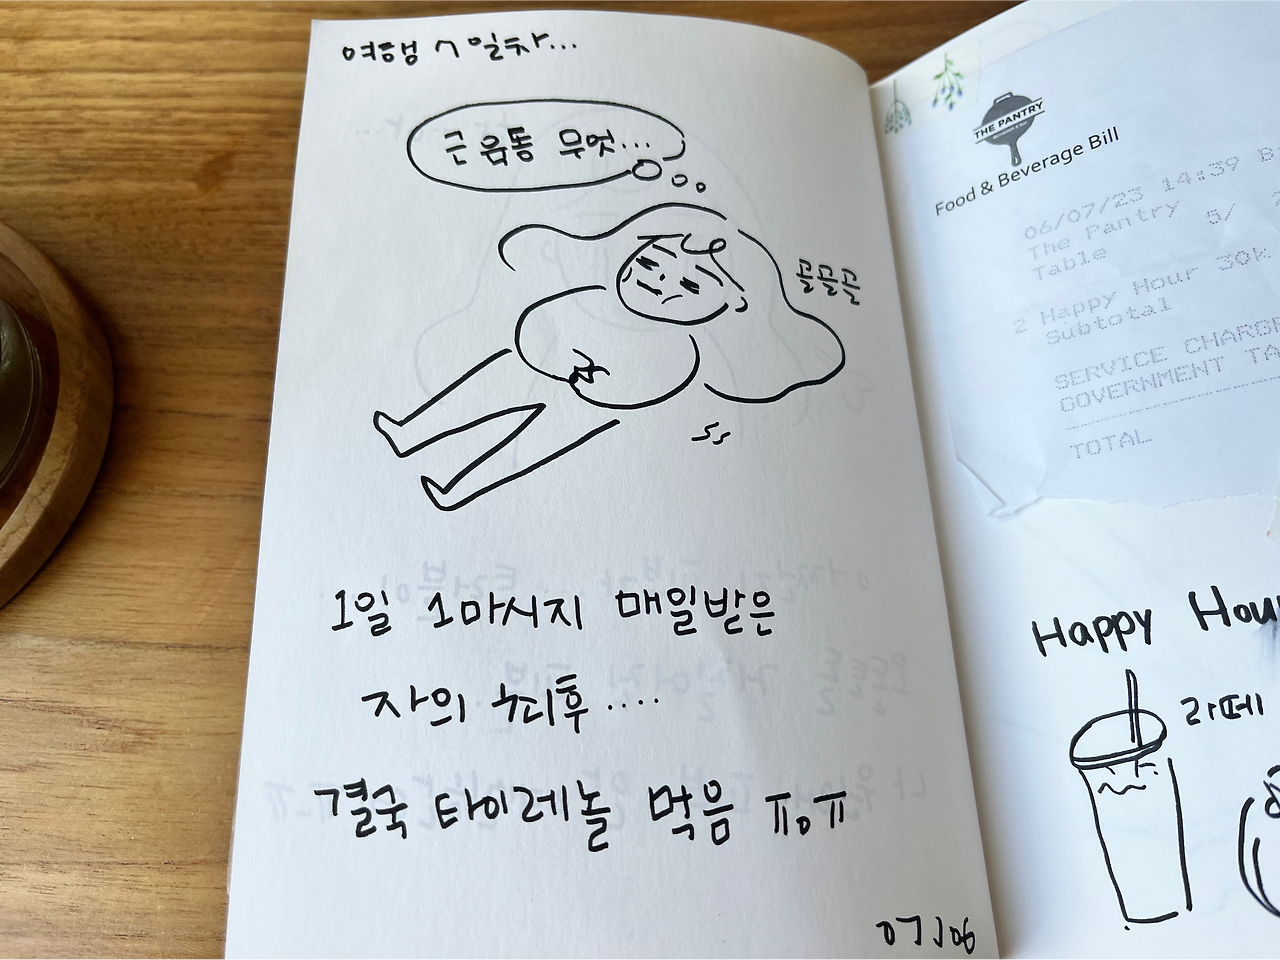 여행 7일차...
근육통 무엇...
골골골
1일 1마사지 매일받은
자의 최후....
결국 타이레놀 먹음 ㅠ。ㅠ
07.06
THE PANTRY
Food & Beverage Bill
06/07/23 14:39
The Pantry 5/
Table
2 Happy Hour 30k
Subtotal
SERVICE CHARGE
GOVERNMENT TA
TOTAL
Happy Hou
라떼